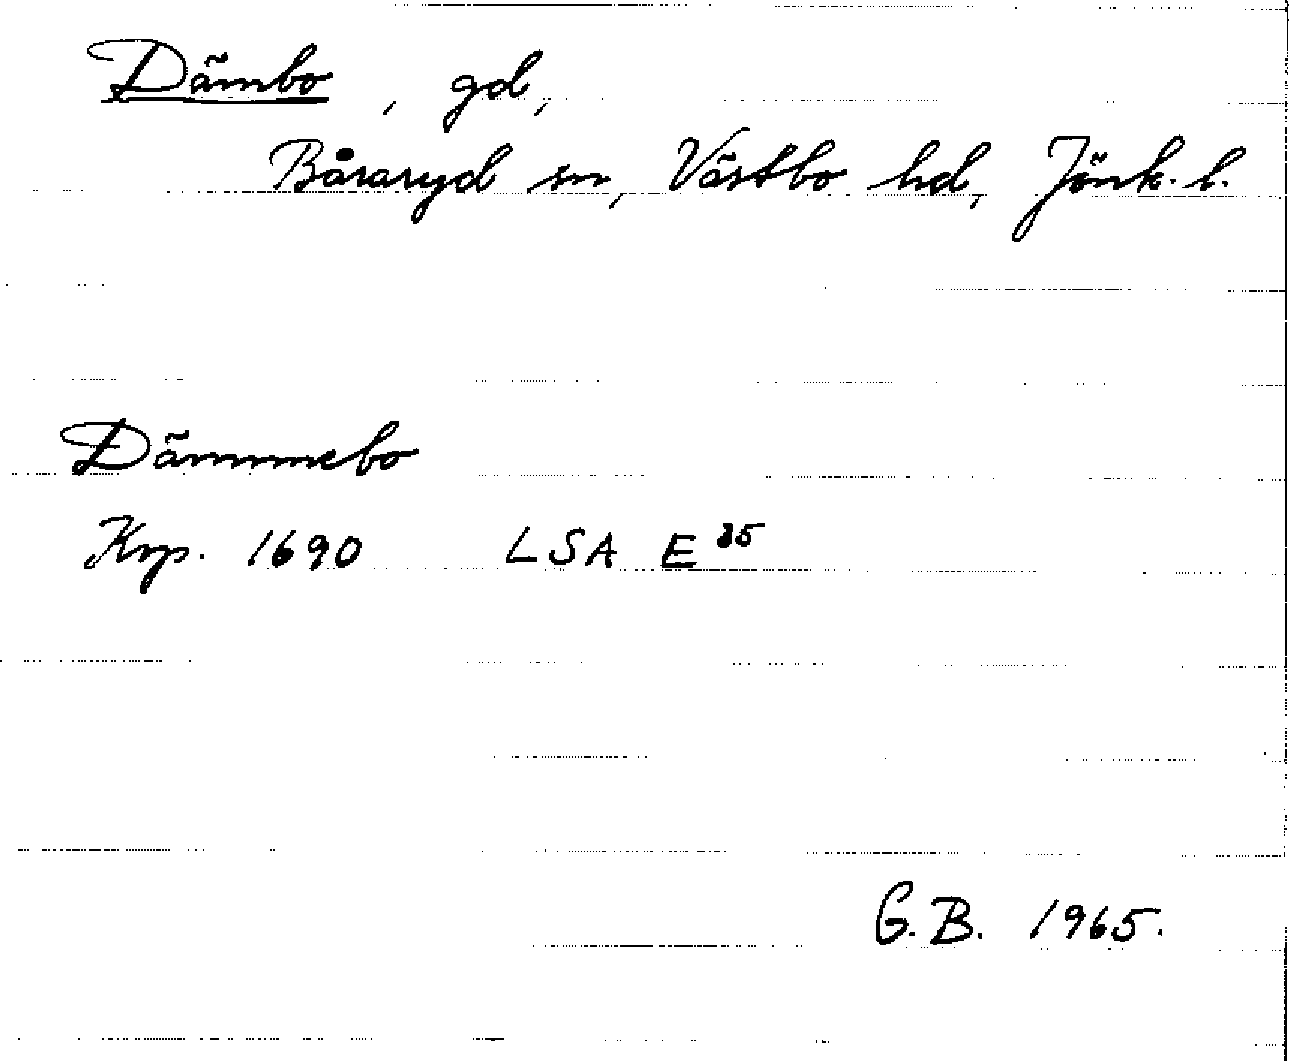 Dämbo, gd,
Båraryd sn, Västbo hd, Jönk. l.
Dämmmebo
Krp. 1690 LSA E 35
G.B. 1965.